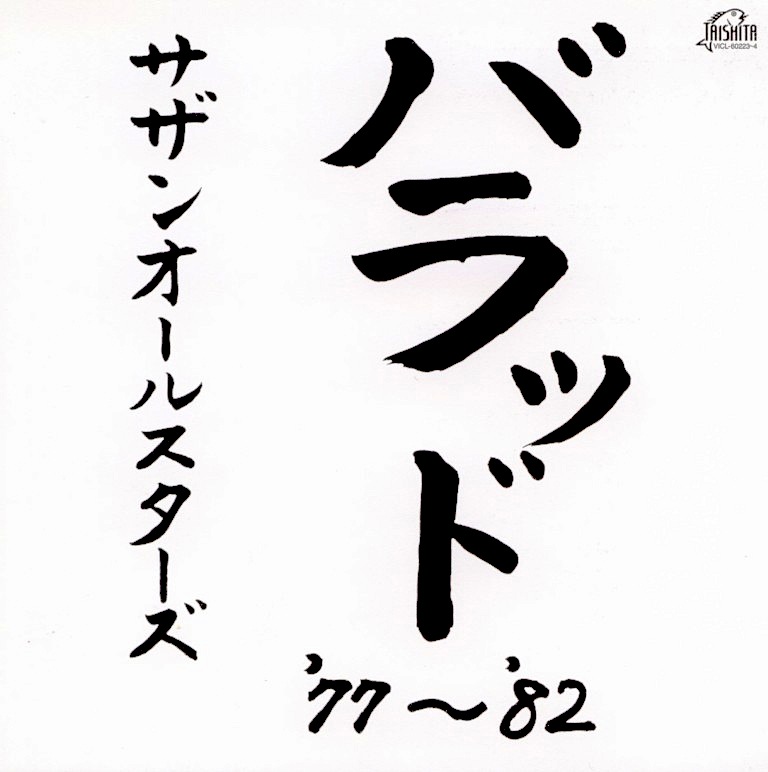 バラッド
'77～'82
サザンオールスターズ
TAISHITA
VICL-60223~4